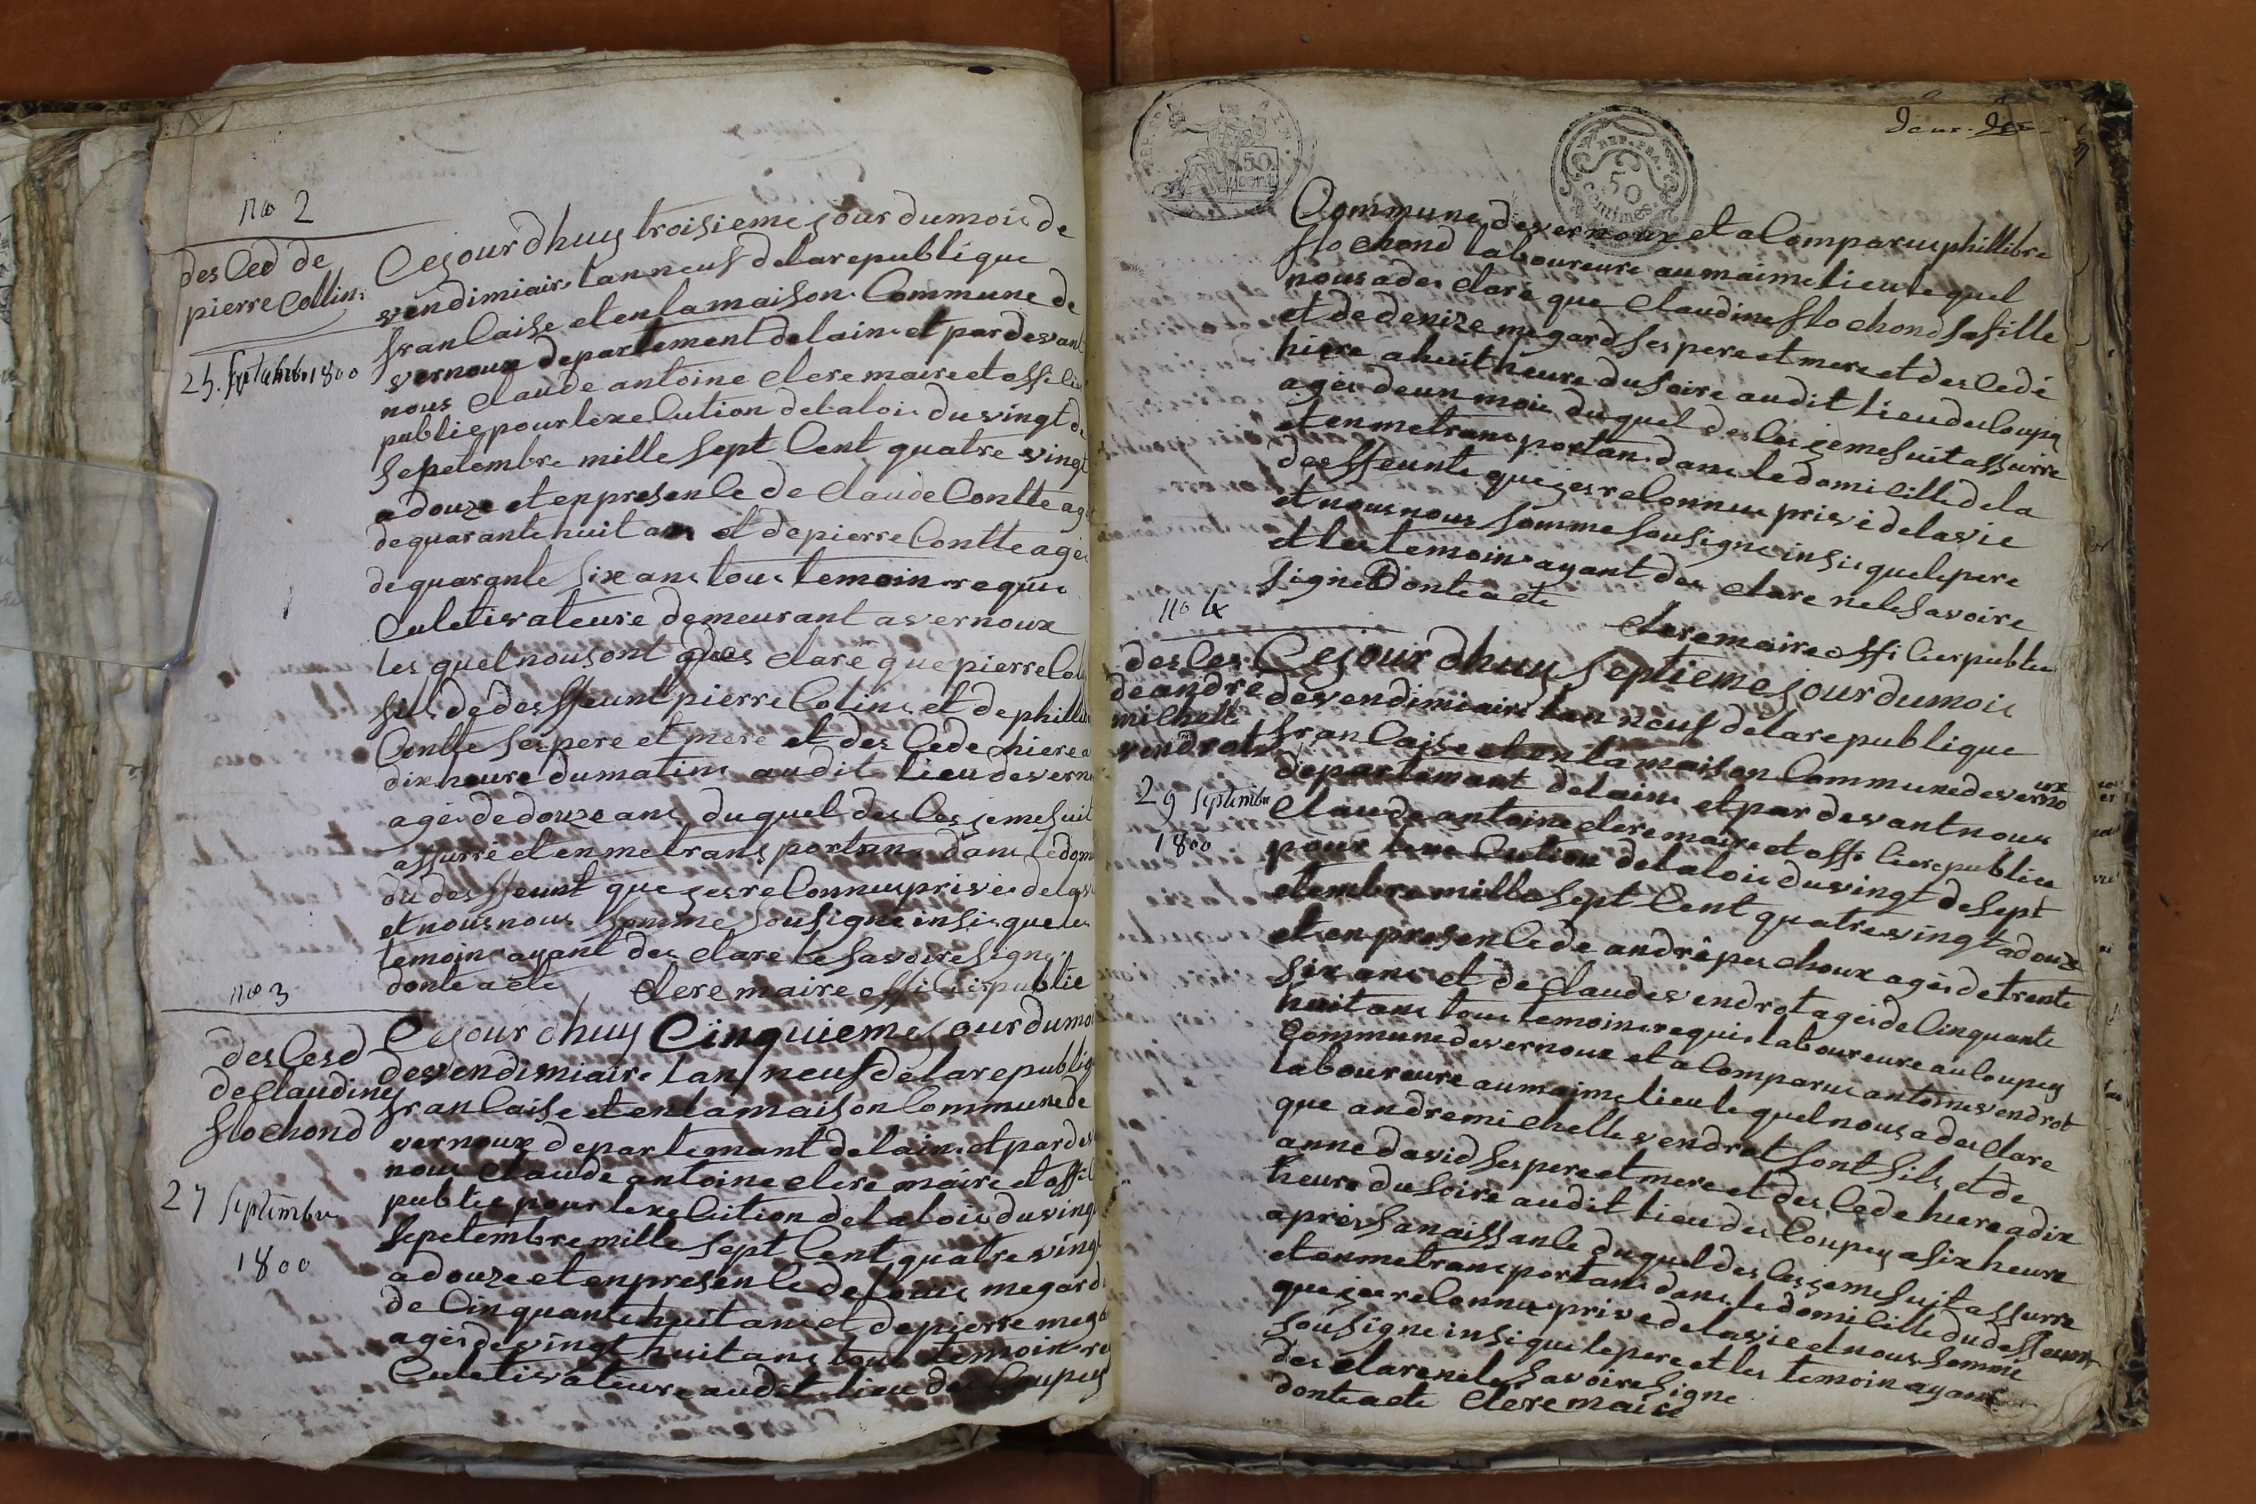 no 2
des Ced de
pierre Collin
25. septembre 1800
Ce jour dhuy troisieme jour du mois de
vendimiaire lan neuf de la republique
francaise et en la maison Commune de
vernoux departement de lain et par devant
nous Claude antoine clere maire et offi
public pour lexecution de la loi du vingt de
sepetembre mille sept Cent quatre vingt
adouze et en presence de Claude Contte ag
de quarante huit an et de pierre Contte agé
de quarante six ans tous temoin requis
Culetivateure demeurant a vernoux
les quel nous ont des clare que pierre Col
fils de desffeunt pierre Colin et de phill
Contte ses pere et mere et des Cede hiere a
dix heure du matin au dit lieu de vern
agés de douze ans du quel des Ces je me suit
assurre et en me trans portan dans le dom
du desffeunt que jes reConnus privé de la v
et nous nous somme sousigne insi que les
temoin ayant des clare le savoire signe
dont acte clere maire offi Cier publie
no 3
des Cesd
de Claudine
flochond
27 septembre
1800
Ce jour dhuy Cinquieme jour du mo
de vendimiaire lan neuf de la republiq
francaise et en la maison Commune de
vernoux departemant de lain et par de
nous Claude antoine clere maire et offi
public pour lexeCution de la loi du ving
sepetembre mille sept Cent quatre ving
adouze et en presence de louis megard
de Cinquante huit ans et de pierre meg
agés de vingt huit ans tous temoin re
Culetivateure au dit lieu des Coupey
deux
REP. FRA.
50
centimes
50
cent
Commune de vernoux et a Comparus phillibre
flochond laboureure au maime lieu le quel
nous a des clare que Claudine flochond sa fille
et de denize megard ses pere et mere et des Cedé
hiere a huit heure du soire au dit lieu du Coupey
agés de un mois du quel des Ces je me suit assurre
et en me trans portan dans le domicille de la
desffeunte que jes reConnus privé de la vie
et nous nous somme sousigne insi que le pere
et les temoin ayant des clare ne le savoire
signe Dont acte
clere maire offi Cier publie
no 4
des Ces
de andré
michelle
vendrot
29 septembre
1800
Ce jour dhuy septieme jour du mois
de vendimiaire lan neuf de la republique
francaise et en la maison Commune de verno
ux
departemant de lain et par devant nous
Claude antoine clere maire et offi Ciere publice
pour lexe Cution de la loi du vingt de sept
etembre mille sept Cent quatre vingt adouze
et en presen Ce de andré pechoux agés de trente
six ans et de Claude vendrot agés de Cinquante
huit ans tous temoin requis laboureure au Coupey
Commune de vernoux et a Comparus antoine vendrot
laboureure au maime lieu le quel nous a des clare
que andre michelle vendrot sont fils et de
anne david ses pere et mere et des Cede hiere a dix
heure du soire au dit lieu des Coupey a six heure
après sa naissance du quel des Ces je me suit assurre
et en me trans portans dans le domicille du desffeunt
que jes reConnu prive de la vie et nous somme
sousigne insi que le pere et les temoin ayant
des clare ne le savoire signe
dont acte clere maire